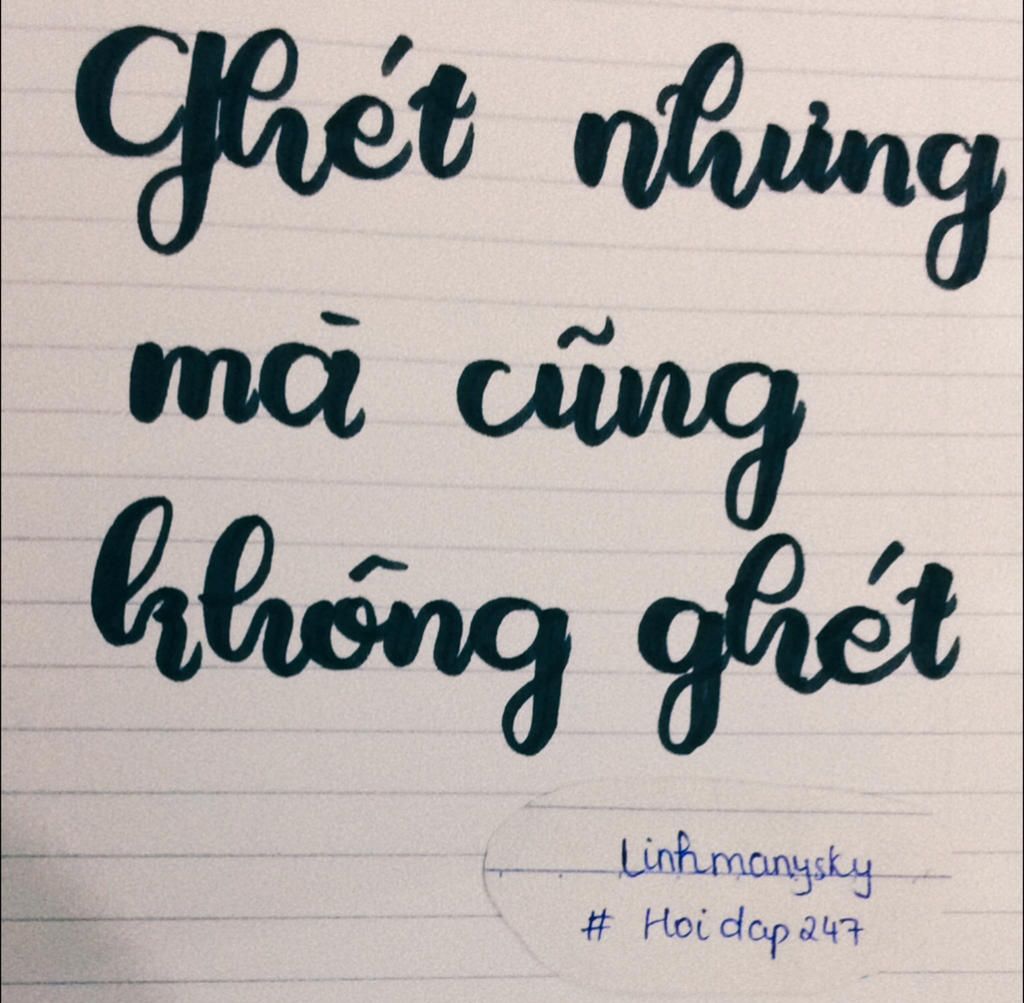 Ghét nhưng
mà cũng
không ghét
Linhmanysky
# Hoidap247